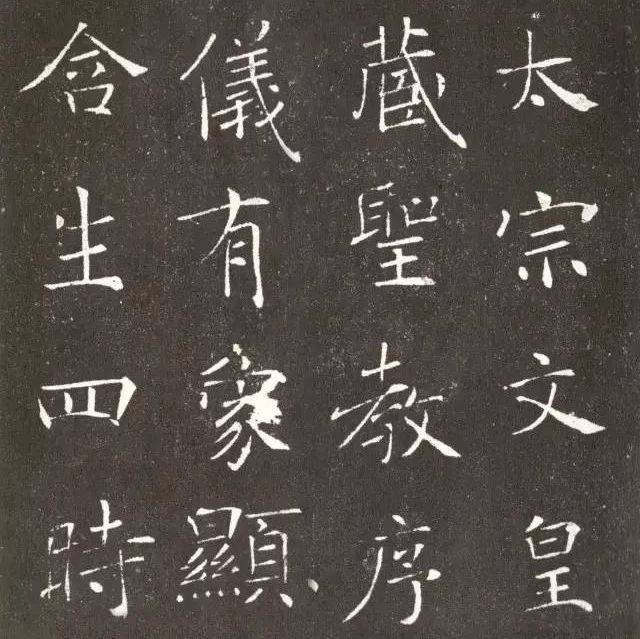 太宗文皇
藏聖教序
儀有象顯
含生四時